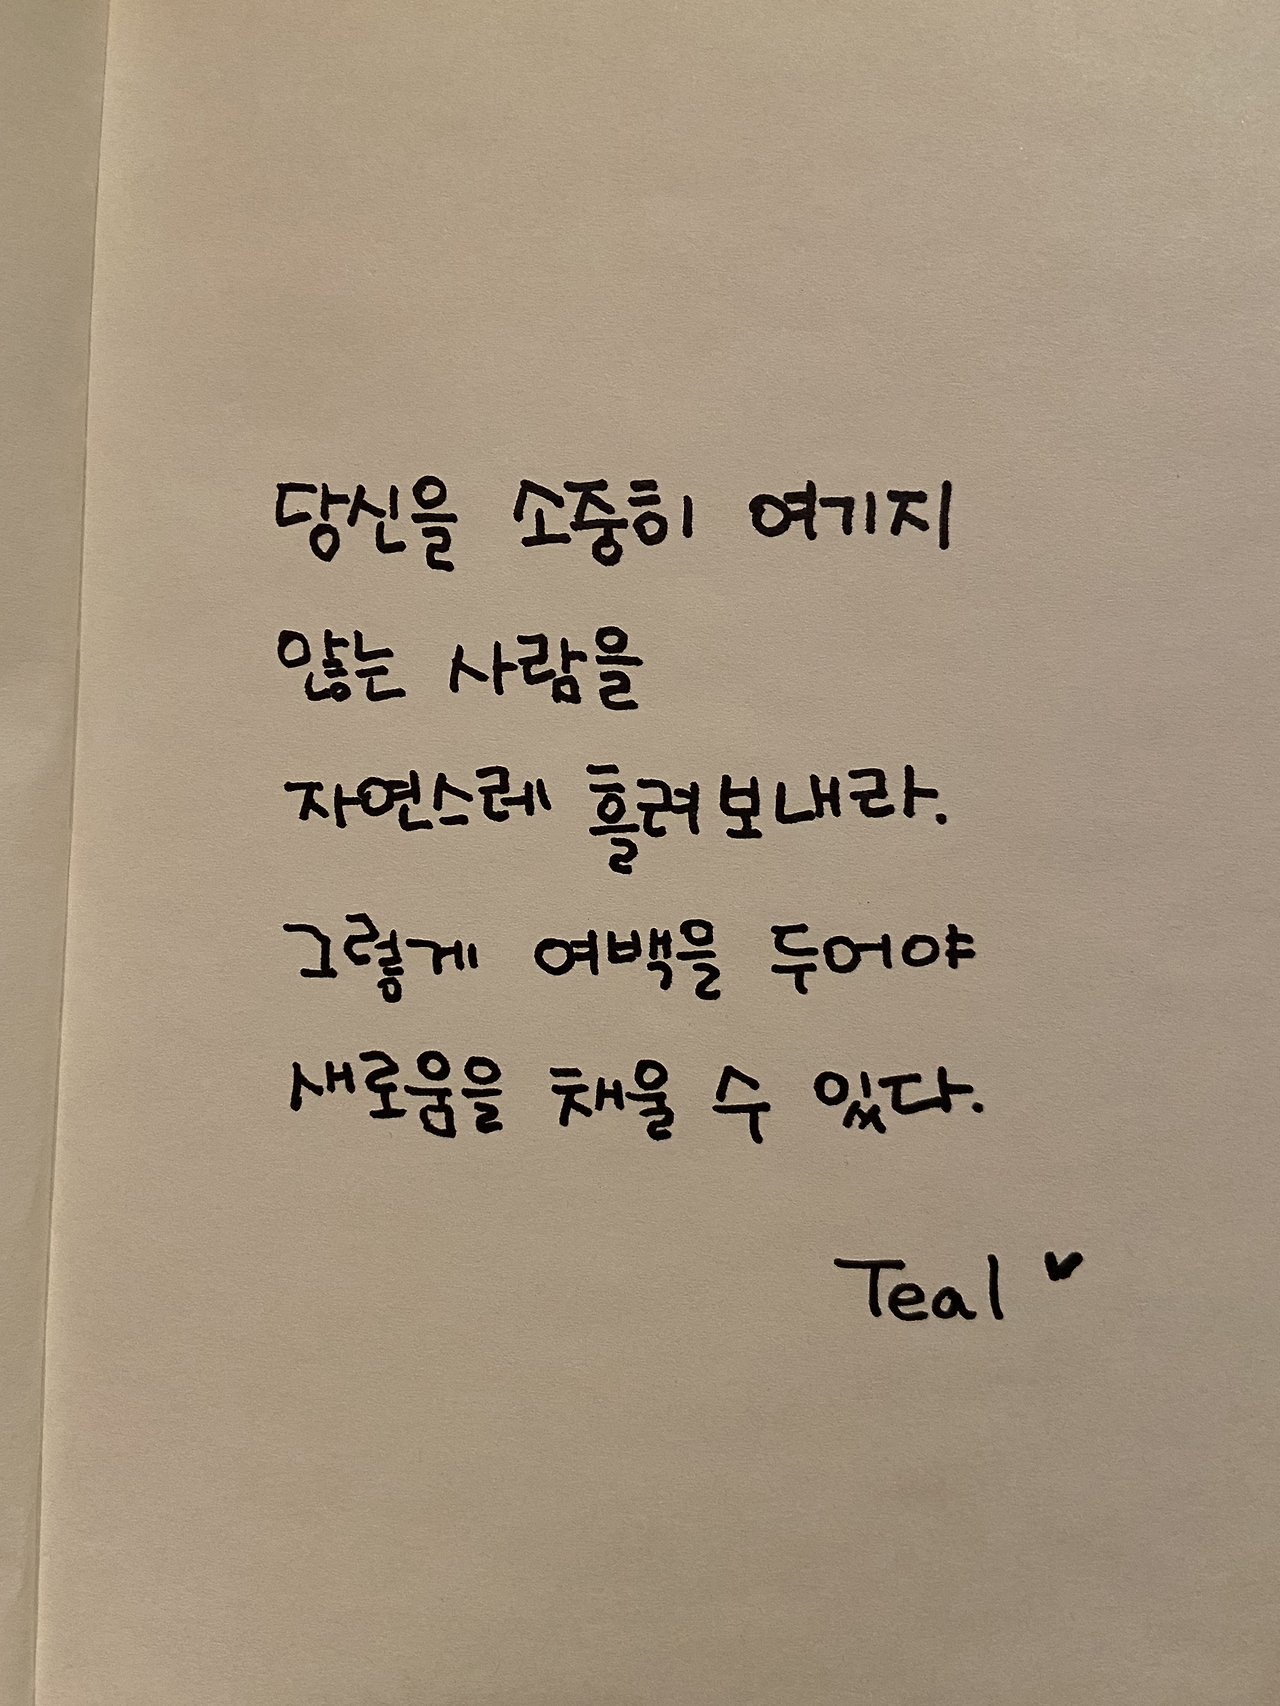 당신을 소중히 여기지
않는 사람을
자연스레 흘려보내라.
그렇게 여백을 두어야
새로움을 채울 수 있다.
Teal ♥